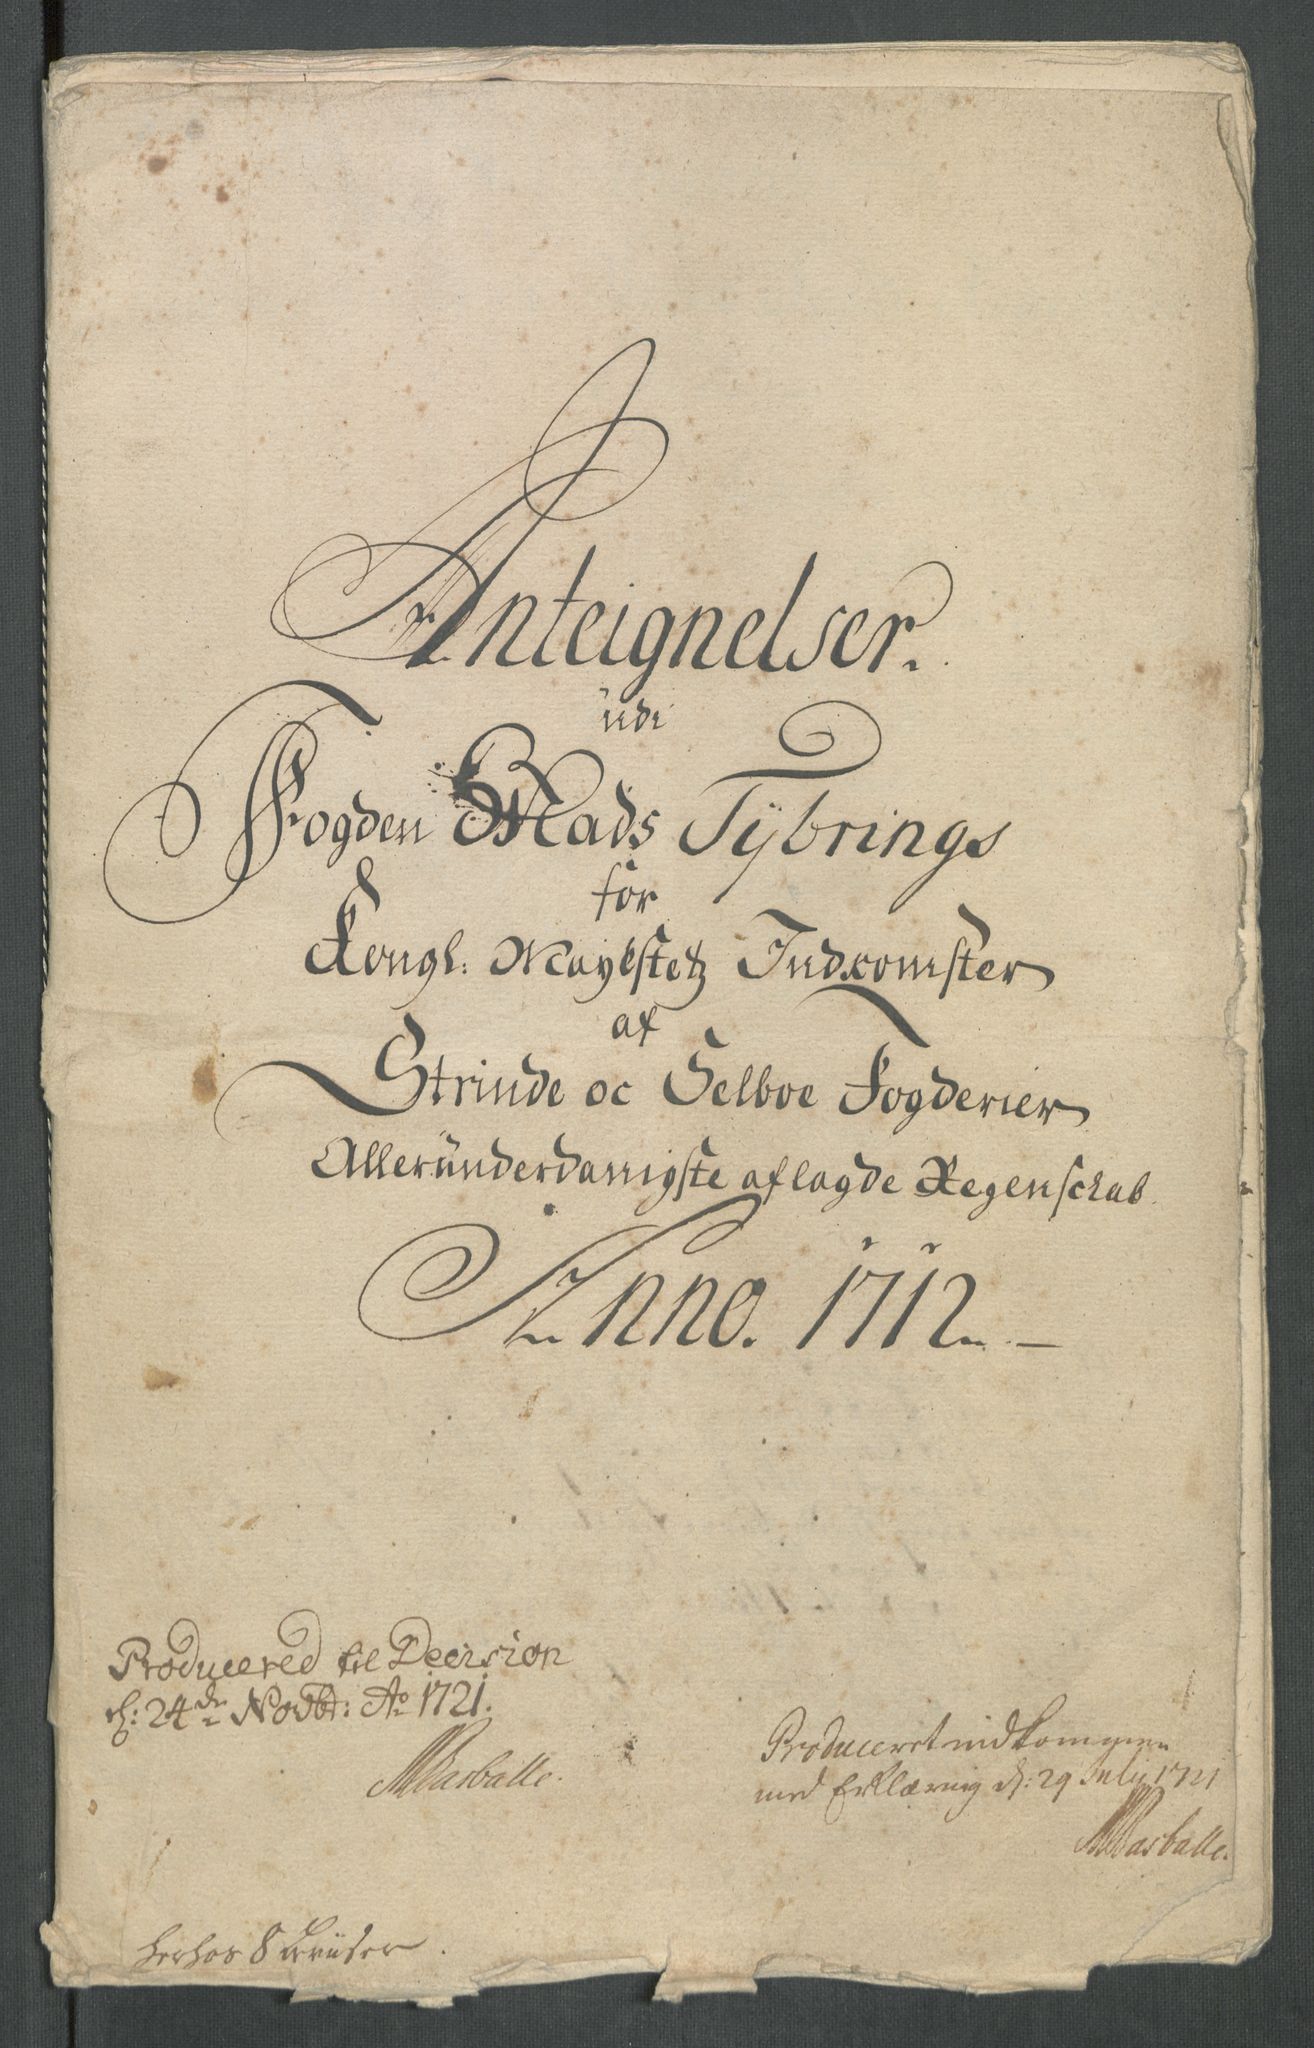 Anteignelser.
udi
Fogden Mads Tÿbrings
for
Kongl: Mayestetz Indkomster
af
Strinde oc Selboe Fogderier
Alleründerdanigste aflagde Regenschab
Anno. 1712
Producered til Decision
d: 24de Novbr: Ao 1721.
MBasballe.
Produceret indkommen
med Erklæring d: 29 July 1721
MBasballe.
herhos 8